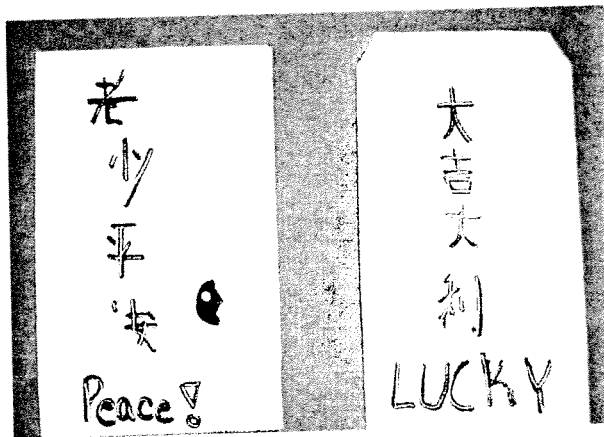 老少平安
Peace!
大吉大利
LUCKY